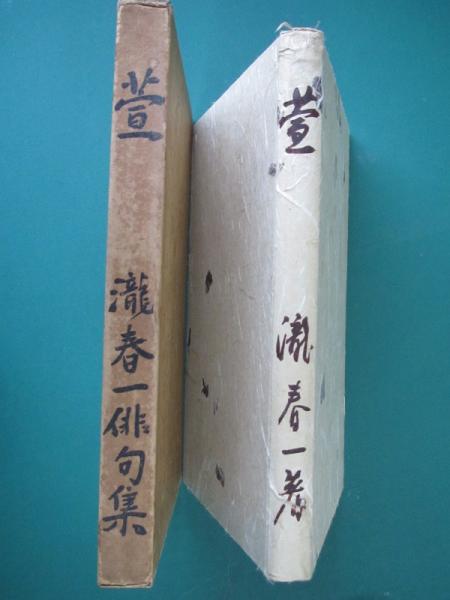 萱
瀧春一俳句集
萱
瀧春一著